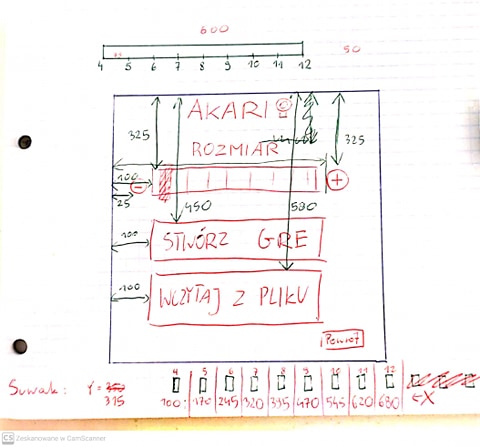 600
50
4 5 6 7 8 9 10 11 12
AKARI
325
ROZMIAR
325
100
- +
25
450 590
100 STWÓRZ GRE
100 WCZYTAJ Z PLIKU
Powrót
4 5 6 7 8 9 10 11 12
Suwak: Y = 315 100 170 245 320 395 470 545 620 680 ←X
CS Zeskanowane w CamScanner